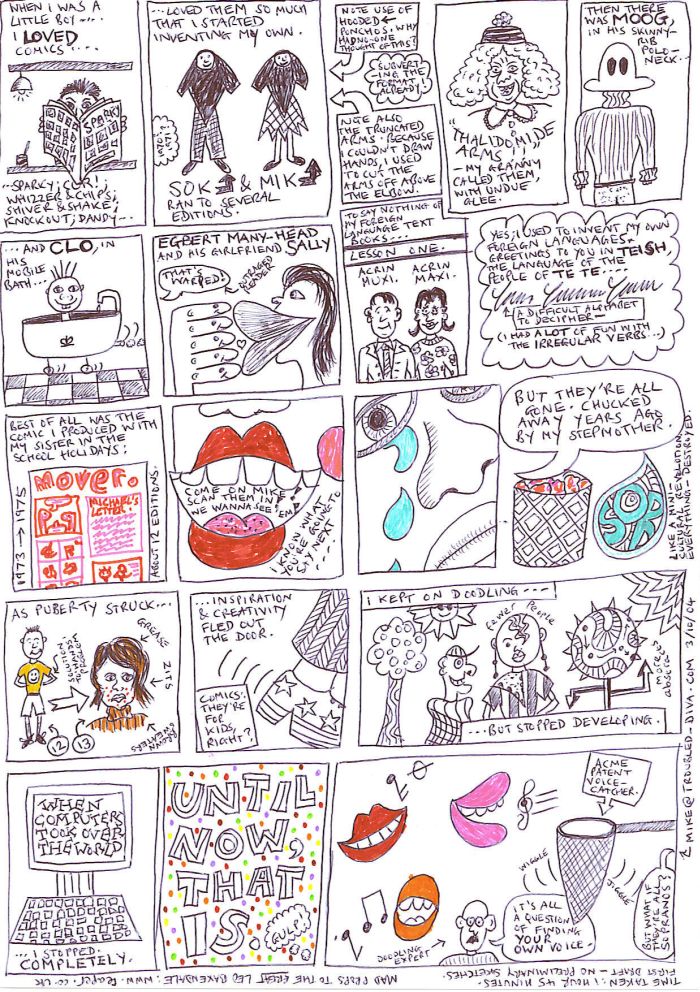 WHEN I WAS A
LITTLE BOY...
I LOVED
COMICS....
SPARKY
...SPARKY; CUR!
WHIZZER & CHIPS;
SHIVER & SHAKE;
KNOCKOUT; DANDY...
...LOVED THEM SO MUCH
THAT I STARTED
INVENTING MY OWN.
SOK & MIK
RAN TO SEVERAL
EDITIONS.
NOTE USE OF
HOODED
PONCHOS. WHY
HAD NO-ONE
THOUGHT OF THIS?
SUBVERT-
ING THE
FORMAT
ALREADY!
NOTE ALSO
THE TRUNCATED
ARMS. BECAUSE
I COULDN'T DRAW
HANDS, I USED
TO CUT THE
ARMS OFF ABOVE
THE ELBOW.
"THALIDOMIDE
ARMS"
- MY GRANNY
CALLED THEM,
WITH UNDUE
GLEE.
THEN THERE
WAS MOOG,
IN HIS SKINNY-
RIB
POLO-
NECK...
...AND CLO, IN
HIS
MOBILE
BATH...
EGBERT MANY-HEAD
AND HIS GIRLFRIEND SALLY
THAT'S
WARPED!
OUTRAGED
READER
TO SAY NOTHING OF
MY FOREIGN
LANGUAGE TEXT
BOOKS...
LESSON ONE.
ACRIN
MUXI.
ACRIN
MAXI.
YES, I USED TO INVENT MY OWN
FOREIGN LANGUAGES.
GREETINGS TO YOU IN TEISH,
THE LANGUAGE OF THE
PEOPLE OF TE TE...
A DIFFICULT ALPHABET
TO DECIPHER-
(I HAD A LOT OF FUN WITH
THE IRREGULAR VERBS...)
BEST OF ALL WAS THE
COMIC I PRODUCED WITH
MY SISTER IN THE
SCHOOL HOLIDAYS:
1973 → 1975
MOVER.
MICHAEL'S
LETTER.
ABOUT 12 EDITIONS.
COME ON MIKE
SCAN THEM IN!
WE WANNA SEE 'EM
I KNOW WHAT
YOU'RE GOING TO
SAY NEXT
BUT THEY'RE ALL
GONE. CHUCKED
AWAY YEARS AGO
BY MY STEPMOTHER.
SOB
LIKE A MINI-
CULTURAL REVOLUTION,
EVERYTHING DESTROYED.
AS PUBERTY STRUCK...
GREASE
ZITS
BROWN
12
13
...INSPIRATION
& CREATIVITY
FLED OUT
THE DOOR.
COMICS:
THEY'RE
FOR
KIDS,
RIGHT?
I KEPT ON DOODLING...
Fewer People
more
abstract
...BUT STOPPED DEVELOPING.
WHEN
COMPUTERS
TOOK OVER
THE WORLD
...I STOPPED.
COMPLETELY.
UNTIL
NOW,
THAT
IS.
GULP!
ACME
PATENT
VOICE-
CATCHER.
WIGGLE
JIGGLE
IT'S ALL
A QUESTION
OF FINDING
YOUR
OWN VOICE.
DOODLING
EXPERT
BUT WHAT IF
THEY'RE ALL
SOPRANOS?
MIKE@TROUBLED-DIVA.COM 3/10/04
MAD PROPS TO THE GREAT LEO BAXENDALE: WWW.REAPER.CO.UK
TIME TAKEN: 1 HOUR 45 MINUTES.
FIRST DRAFT - NO PRELIMINARY SKETCHES.